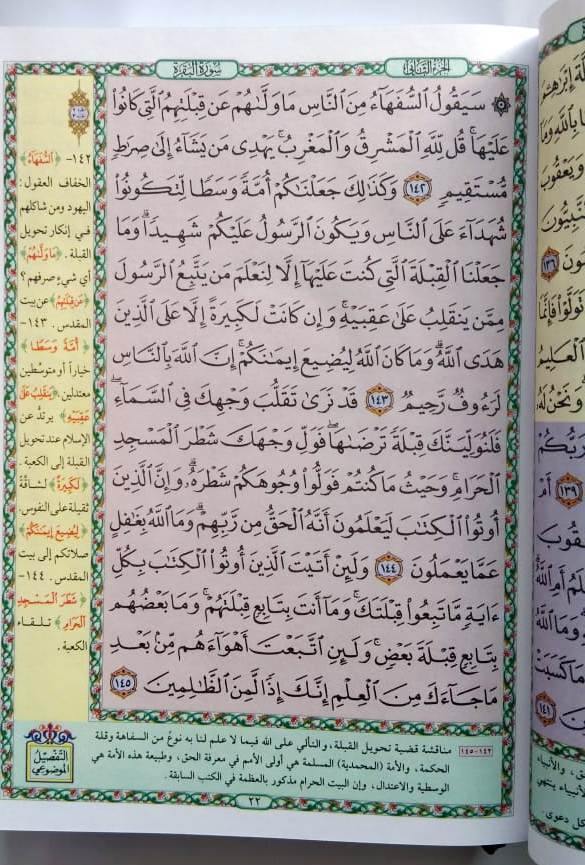 سورة البقرة
الجزء الثاني
۞ سَيَقُولُ ٱلسُّفَهَآءُ مِنَ ٱلنَّاسِ مَا وَلَّىٰهُمْ عَن قِبْلَتِهِمُ ٱلَّتِى كَانُوا۟
عَلَيْهَا ۚ قُل لِّلَّهِ ٱلْمَشْرِقُ وَٱلْمَغْرِبُ ۚ يَهْدِى مَن يَشَآءُ إِلَىٰ صِرَٰطٍ
مُّسْتَقِيمٍ ١٤٢ وَكَذَٰلِكَ جَعَلْنَٰكُمْ أُمَّةً وَسَطًا لِّتَكُونُوا۟
شُهَدَآءَ عَلَى ٱلنَّاسِ وَيَكُونَ ٱلرَّسُولُ عَلَيْكُمْ شَهِيدًا ۗ وَمَا
جَعَلْنَا ٱلْقِبْلَةَ ٱلَّتِى كُنتَ عَلَيْهَآ إِلَّا لِنَعْلَمَ مَن يَتَّبِعُ ٱلرَّسُولَ
مِمَّن يَنقَلِبُ عَلَىٰ عَقِبَيْهِ ۚ وَإِن كَانَتْ لَكَبِيرَةً إِلَّا عَلَى ٱلَّذِينَ
هَدَى ٱللَّهُ ۗ وَمَا كَانَ ٱللَّهُ لِيُضِيعَ إِيمَٰنَكُمْ ۚ إِنَّ ٱللَّهَ بِٱلنَّاسِ
لَرَءُوفٌ رَّحِيمٌ ١٤٣ قَدْ نَرَىٰ تَقَلُّبَ وَجْهِكَ فِى ٱلسَّمَآءِ ۖ
فَلَنُوَلِّيَنَّكَ قِبْلَةً تَرْضَىٰهَا ۚ فَوَلِّ وَجْهَكَ شَطْرَ ٱلْمَسْجِدِ
ٱلْحَرَامِ ۚ وَحَيْثُ مَا كُنتُمْ فَوَلُّوا۟ وُجُوهَكُمْ شَطْرَهُۥ ۗ وَإِنَّ ٱلَّذِينَ
أُوتُوا۟ ٱلْكِتَٰبَ لَيَعْلَمُونَ أَنَّهُ ٱلْحَقُّ مِن رَّبِّهِمْ ۗ وَمَا ٱللَّهُ بِغَٰفِلٍ
عَمَّا يَعْمَلُونَ ١٤٤ وَلَئِنْ أَتَيْتَ ٱلَّذِينَ أُوتُوا۟ ٱلْكِتَٰبَ بِكُلِّ
ءَايَةٍ مَّا تَبِعُوا۟ قِبْلَتَكَ ۚ وَمَآ أَنتَ بِتَابِعٍ قِبْلَتَهُمْ ۚ وَمَا بَعْضُهُم
بِتَابِعٍ قِبْلَةَ بَعْضٍ ۚ وَلَئِنِ ٱتَّبَعْتَ أَهْوَآءَهُم مِّنۢ بَعْدِ
مَا جَآءَكَ مِنَ ٱلْعِلْمِ ۙ إِنَّكَ إِذًا لَّمِنَ ٱلظَّٰلِمِينَ ١٤٥
١٤٢- ﴿ٱلسُّفَهَآءُ﴾
الخفاف العقول:
اليهود ومن شاكلهم
في إنكار تحويل
القبلة. ﴿مَا وَلَّىٰهُمْ﴾
أي شيء صرفهم؟
﴿عَن قِبْلَتِهِمُ﴾ عن بيت
المقدس. ١٤٣-
﴿أُمَّةً وَسَطًا﴾
خياراً أو متوسطين
معتدلين. ﴿يَنقَلِبُ عَلَىٰ
عَقِبَيْهِ﴾ يرتد عن
الإسلام عند تحويل
القبلة إلى الكعبة.
﴿لَكَبِيرَةً﴾ لشاقة
ثقيلة على النفوس.
﴿لِيُضِيعَ إِيمَٰنَكُمْ﴾
صلاتكم إلى بيت
المقدس. ١٤٤-
﴿شَطْرَ ٱلْمَسْجِدِ
ٱلْحَرَامِ﴾ تلقاء
الكعبة.
التفصيل
الموضوعي
١٤٢-١٤٥ مناقشة قضية تحويل القبلة، والتألي على الله فيما لا علم لنا به نوع من السفاهة وقلة
الحكمة، والأمة (المحمدية) المسلمة هي أولى الأمم في معرفة الحق، وطبيعة هذه الأمة هي
الوسطية والاعتدال، وإن البيت الحرام مذكور بالعظمة في الكتب السابقة.
٢٢